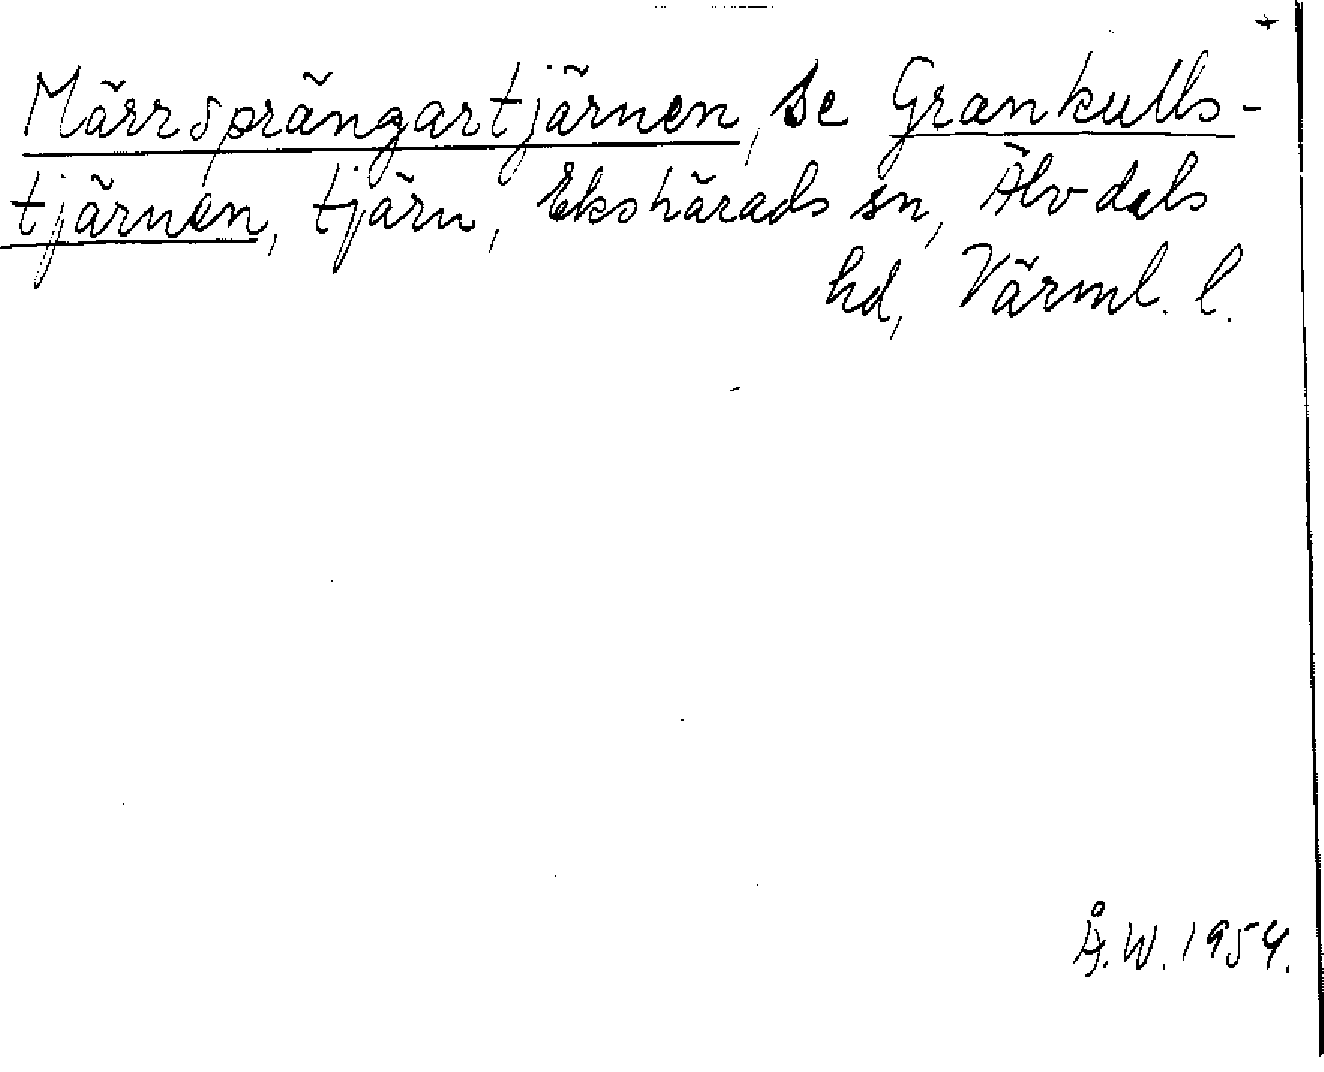 Märrsprängartjärnen, se Grankulls-
tjärnen, tjärn, Ekshärads sn, Älvdals
hd, Värml. l.
Å.W. 1954.